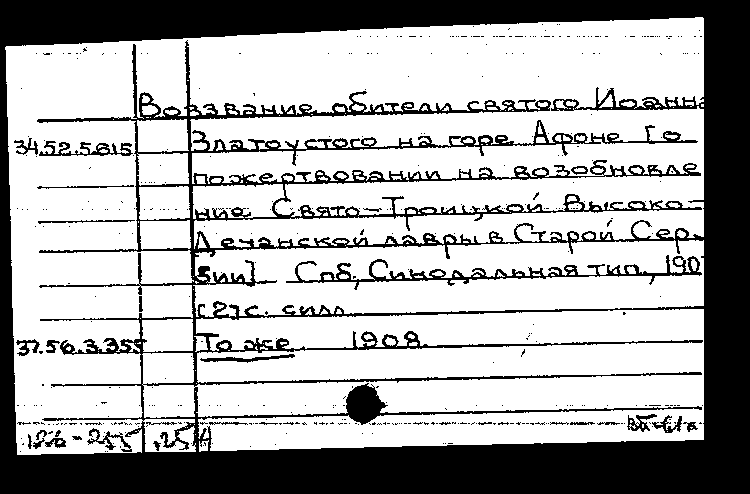 Воззвание обители святого Иоанна
34.52.5.615 Златоустого на горе Афоне [о
пожертвовании на возобновле
ние Свято-Троицкой Высоко-
Дечанской лавры в Старой Сер-
бии]. Спб, Синодальная тип., 190
[2] с. с илл.
37.56.3.355 То же 1908.